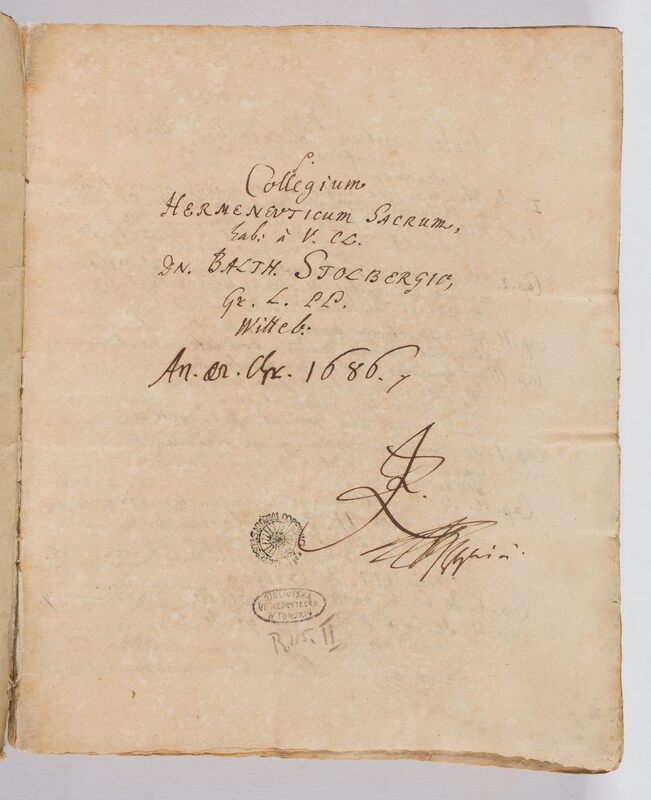 Collegium
HERMENEVTICUM SACRUM,
hab: à V. CL.
DN. BALTH. STOLBERGIO,
Gr. L. PP.
Witteb:
An. ær. Chr. 1686.
BIBLIOTEKA
UNIWERSYTECKA
W TORUNIU
II